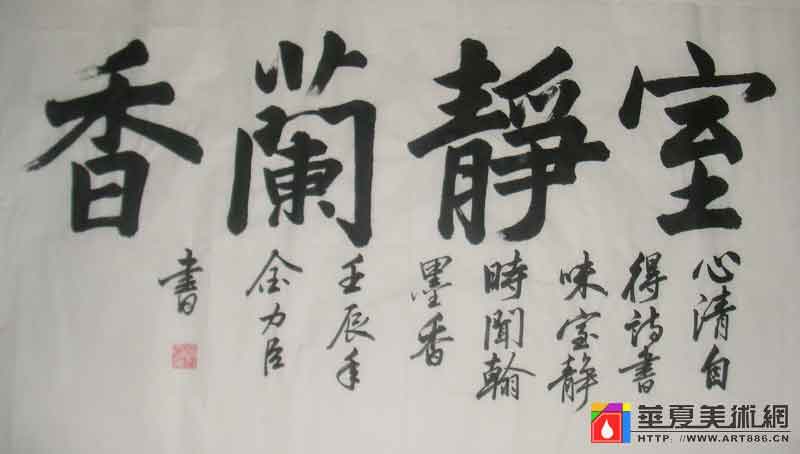 室靜蘭香
心清自
得詩書
味室靜
時聞翰
墨香
壬辰年
金力臣
書
華夏美術網
HTTP://WWW.ART886.CN